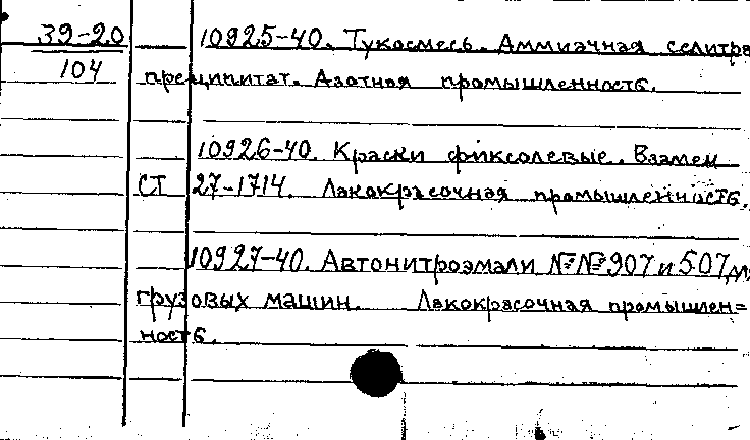 39-20 10925-40. Тукосмесь. Аммиачная селитра
104 преципитат. Азотная промышленность.
10926-40. Краски фиксолевые. Взамен
СТ 27-1714. Лакокрасочная промышленность.
10927-40. Автонитроэмали №№ 907 и 507 для
грузовых машин. Лакокрасочная промышлен=
ность.